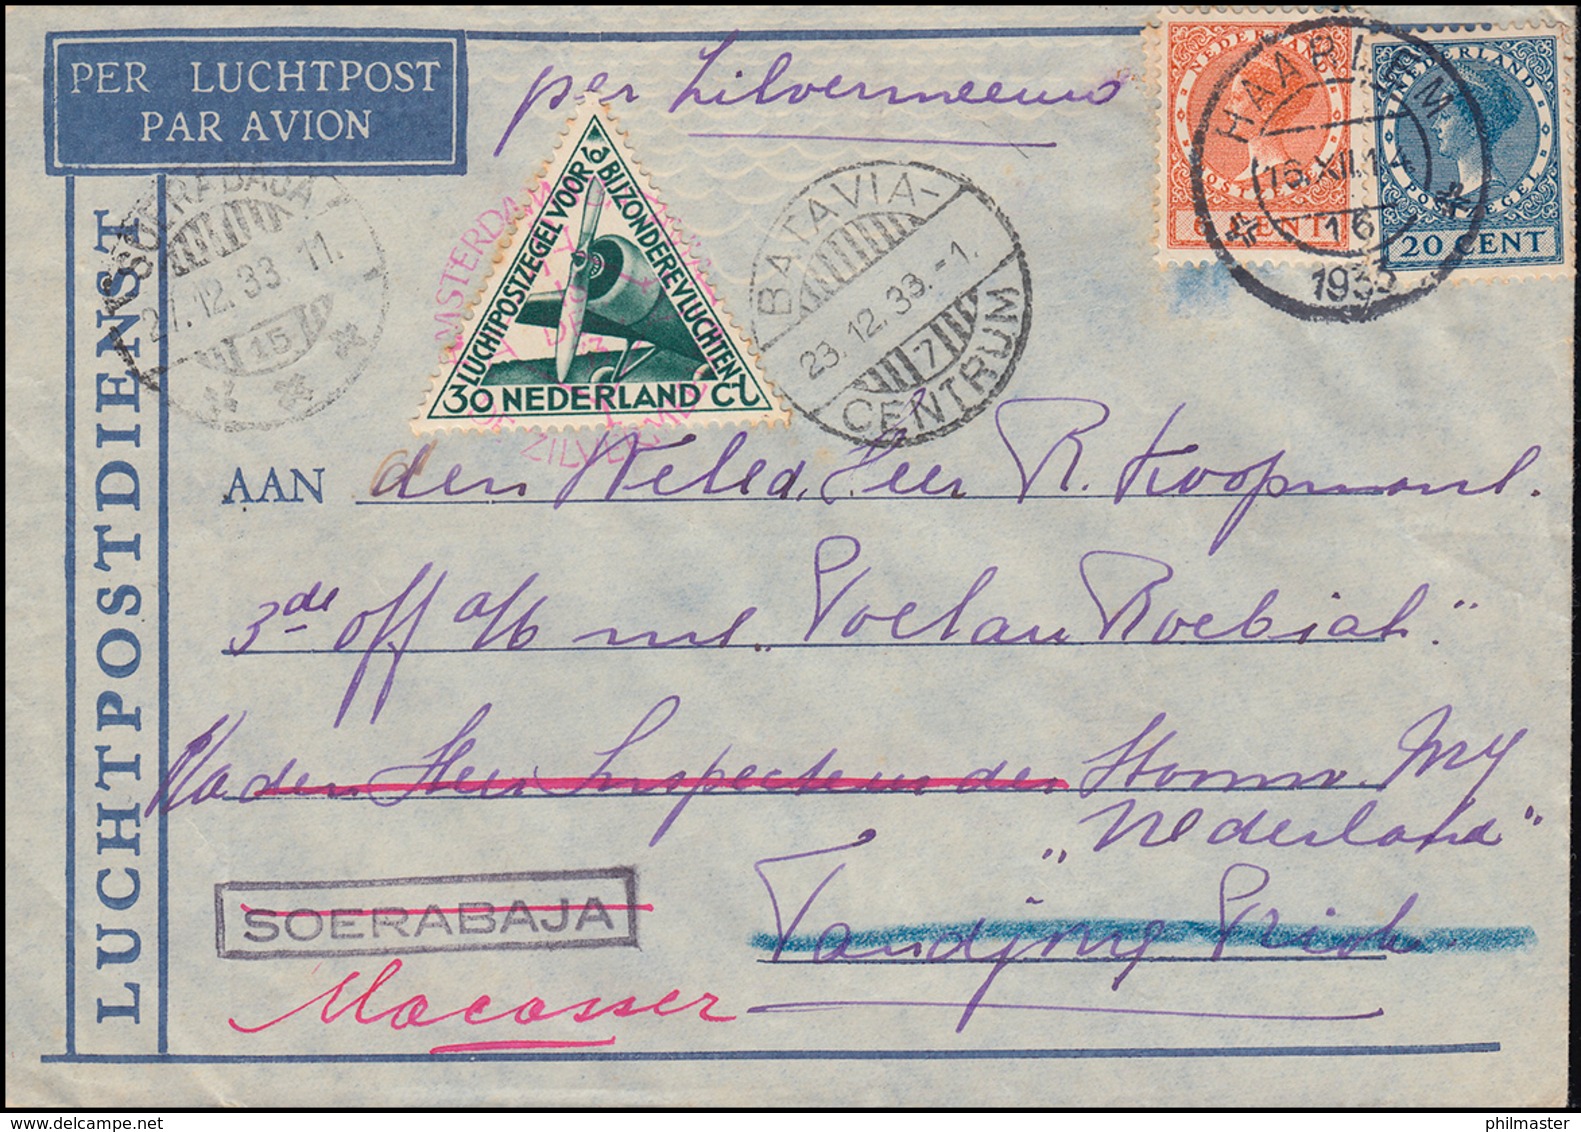 PER LUCHTPOST
PAR AVION
per Zilvermeeuw
LUCHTPOSTDIENST
SOERABAJA
27.12.33 11.
15
AMSTERDAM
ZILVERM
LUCHTPOSTZEGEL VOOR
BIJZONDERE VLUCHTEN
30 NEDERLAND Ct
BATAVIA-
23.12.33.-1.
7
CENTRUM
NEDERLAND
6 CENT
NEDERLAND
POSTZEGEL
20 CENT
HAARLEM
16.XII.14
16
1933
AAN den Weled. Heer R. Koopmans.
3de off a/b m.s. "Poelau Roebiah."
p/a den Heer Inspecteur der Stoomv. My
"Nederland"
Tandjong Priok.
SOERABAJA
Macasser
philmaster